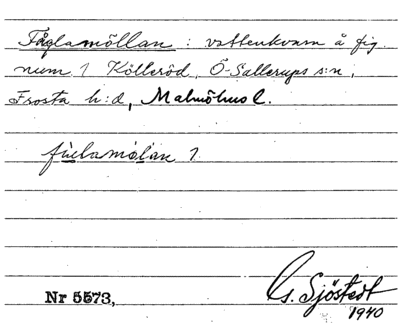 Fåglamöllan : vattenkvarn å fig.
num. 1 Kölleröd, Ö-Sallerups s:n,
Frosta h:d, Malmöhus l.
fúlamølan 1.
Nr 5573,
G. Sjöstedt
1940